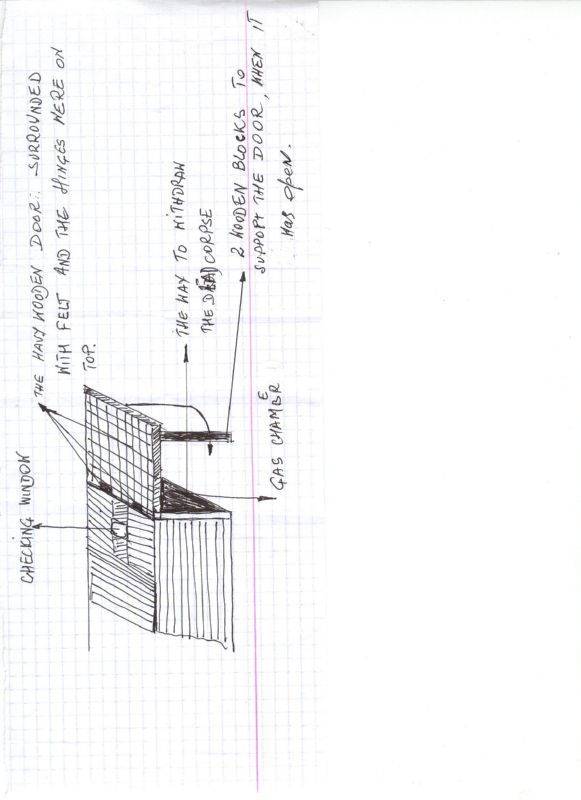 CHECKING WINDOW
THE HAVY WOODEN DOOR. SURROUNDED
WITH FELT AND THE HINGES WERE ON
TOP.
THE WAY TO WITHDRAW
THE DEAD CORPSE
2 WOODEN BLOCKS TO
SUPPORT THE DOOR, WHEN IT
was open.
GAS CHAMBER